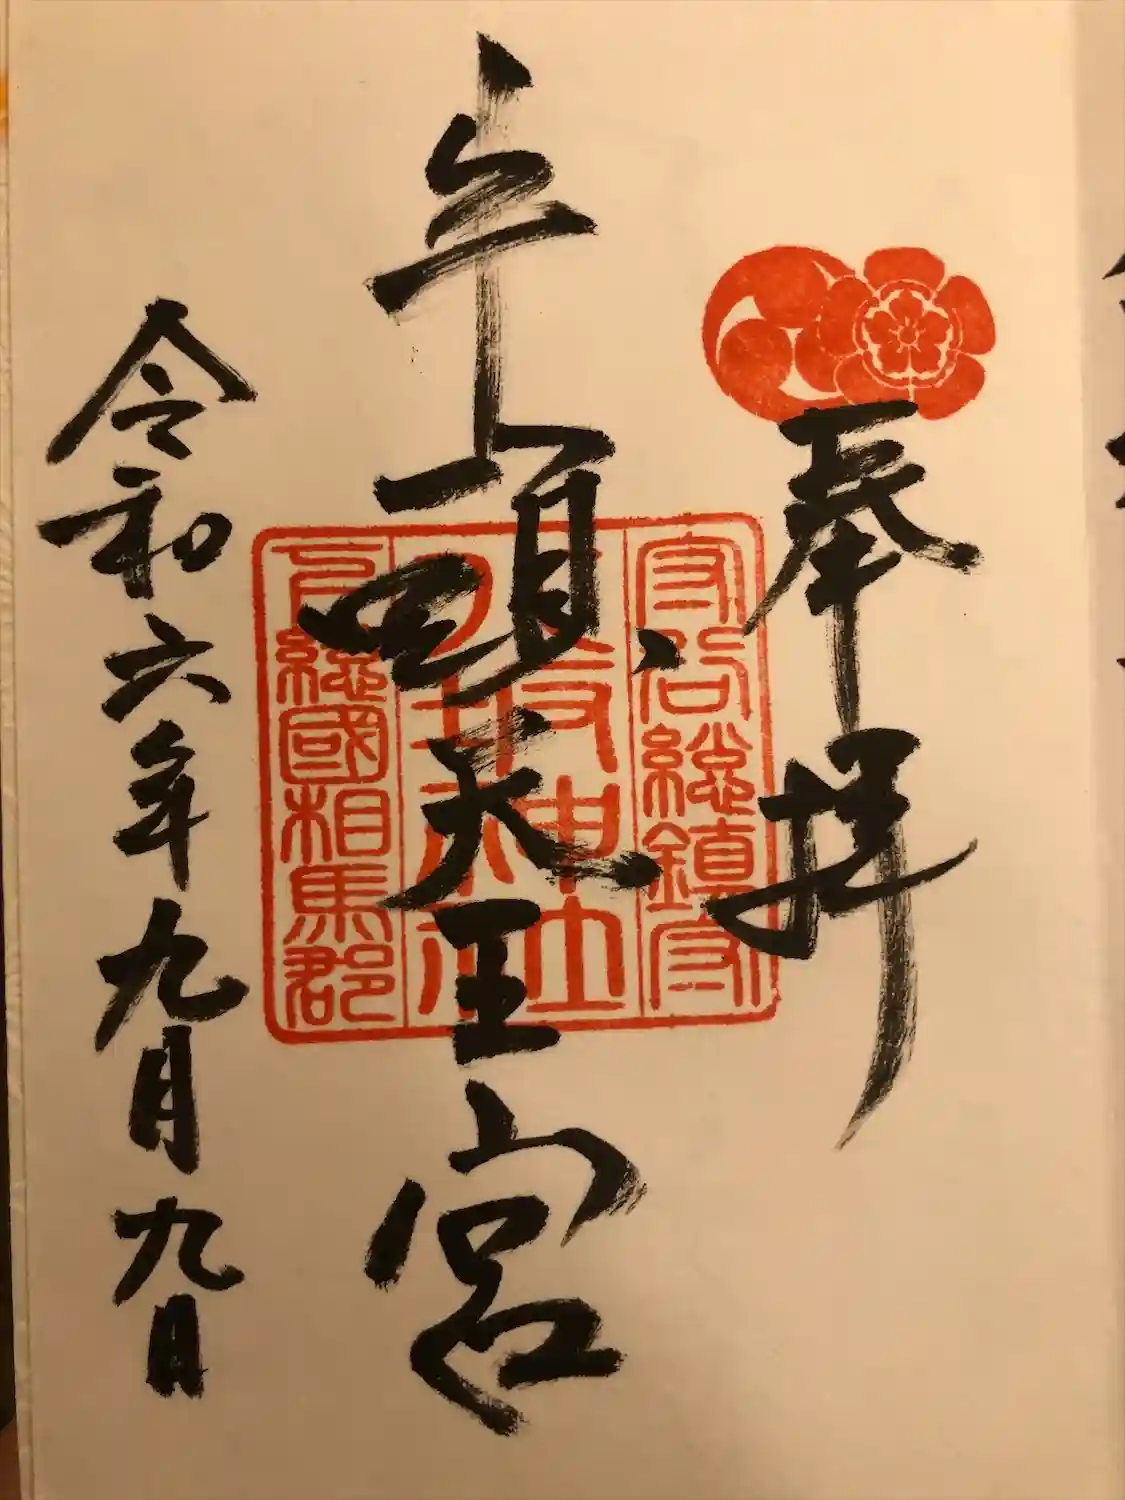 奉拝
牛頭天王宮
令和六年九月九日
守谷総鎮守
八坂神社
下総國相馬郡